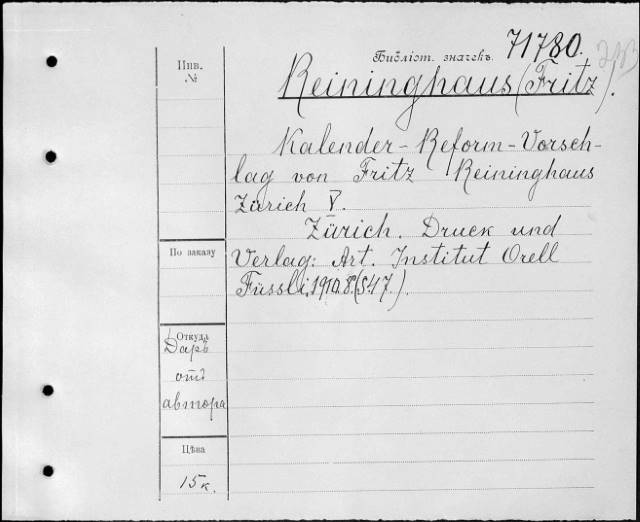 Библіот. значекъ. 71780.
Reininghaus (Fritz).
Kalender-Reform-Vorsch-
lag von Fritz Reininghaus
Zürich V.
Zürich. Druck und
Verlag: Art. Institut Orell
Füssli, 1910. 8º. (S47.).
Инв.
№
По заказу
Откуда
Даръ
отъ
автора
Цѣна
15 к.